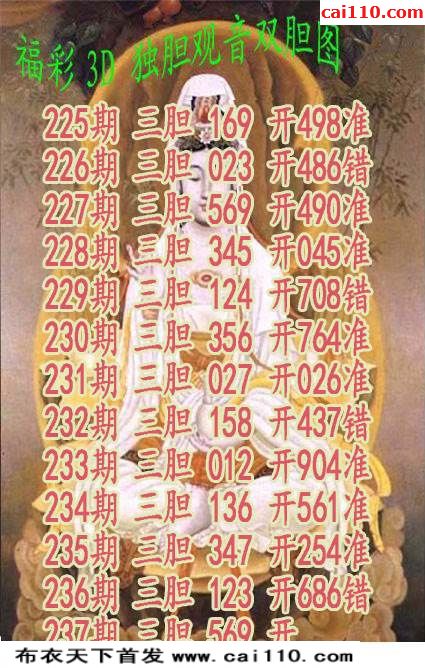 cai110.com
福彩 3D 独胆观音双胆图
225期 三胆 169 开498准
226期 三胆 023 开486错
227期 三胆 569 开490准
228期 三胆 345 开045准
229期 三胆 124 开708错
230期 三胆 356 开764准
231期 三胆 027 开026准
232期 三胆 158 开437错
233期 三胆 012 开904准
234期 三胆 136 开561准
235期 三胆 347 开254准
236期 三胆 123 开686错
237期 三胆 569 开
布衣天下首发 www.cai110.com